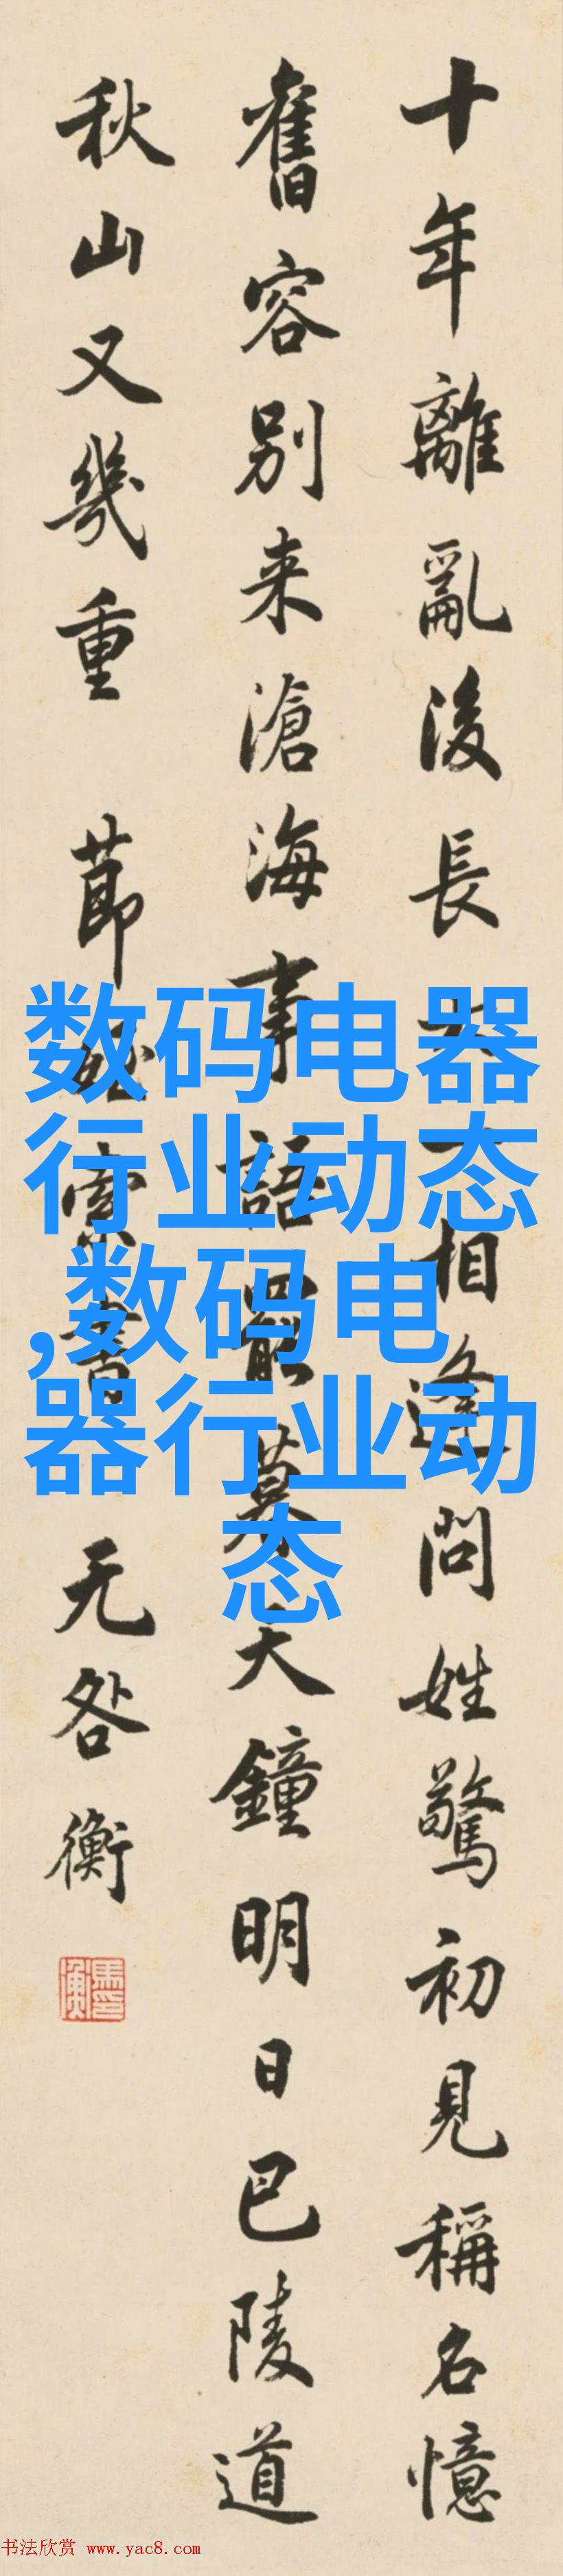 十年離亂後長大一相逢問姓驚初見稱名憶
舊容別来滄海事語罷暮天鐘明日巴陵道
秋山又幾重 莭 索書 无咎衡
馬衡印
数码电器
行业动态
,数码电
器行业动
态
书法欣赏 www.yac8.com